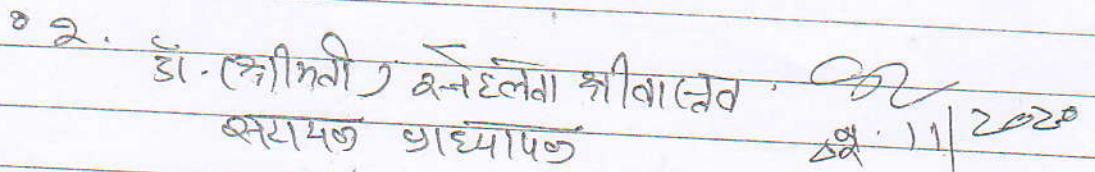 02. डॉ. (श्रीमती) स्नेहलता श्रीवास्तव
सहायक प्राध्यापक 11/2020